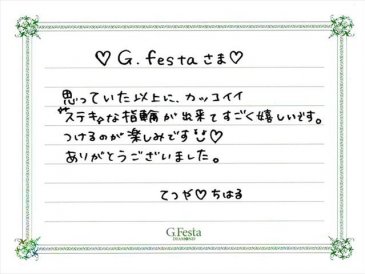 ♡ G.festaさま♡
思っていた以上に、カッコイイ
ステキな指輪が出来てすごく嬉しいです。
つけるのが楽しみです♡
ありがとうございました。
てつや♡ちはる
G.Festa
DIAMOND